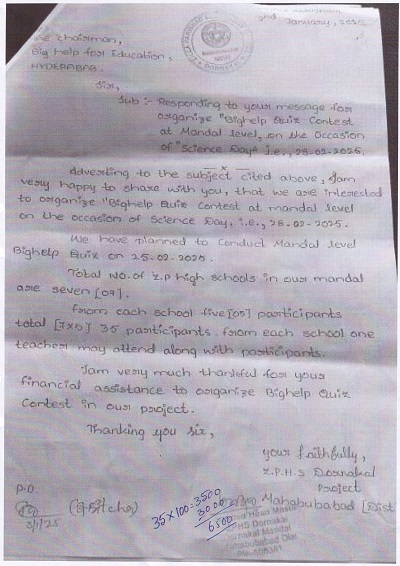 2nd
January, 2025
The Chairman,
Big help for Education,
HYDERABAD.
Sir,
Sub :- Responding to your message for
organize "Bighelp Quiz Contest
at Mandal level, on the Occasion
of "Science Day" i.e., 28-02-2025.
—x—
Adverting to the subject cited above, Iam
very happy to share with you, that we are interested
to organize "Bighelp Quiz Contest at mandal level
on the occasion of Science Day, i.e., 28-02-2025.
We have planned to conduct Mandal level
Bighelp Quiz on 25-02-2025.
Total No. of Z.P high schools in our mandal
are seven [07].
From each school five [05] participants
total [7x5] 35 participants. From each school one
teacher may attend along with participants.
Iam very much thankful for your
financial assistance to organize Bighelp Quiz
Contest in our project.
Thanking you sir,
your faithfully,
Z.P.H.S Dornakal
Project
Mahabubabad [Dist]
P.D.
3/1/25
35 x 100 = 3500
3000
6500
Head Master
ZPHS Dornakal
Dornakal Mandal
Mahabubabad Dist